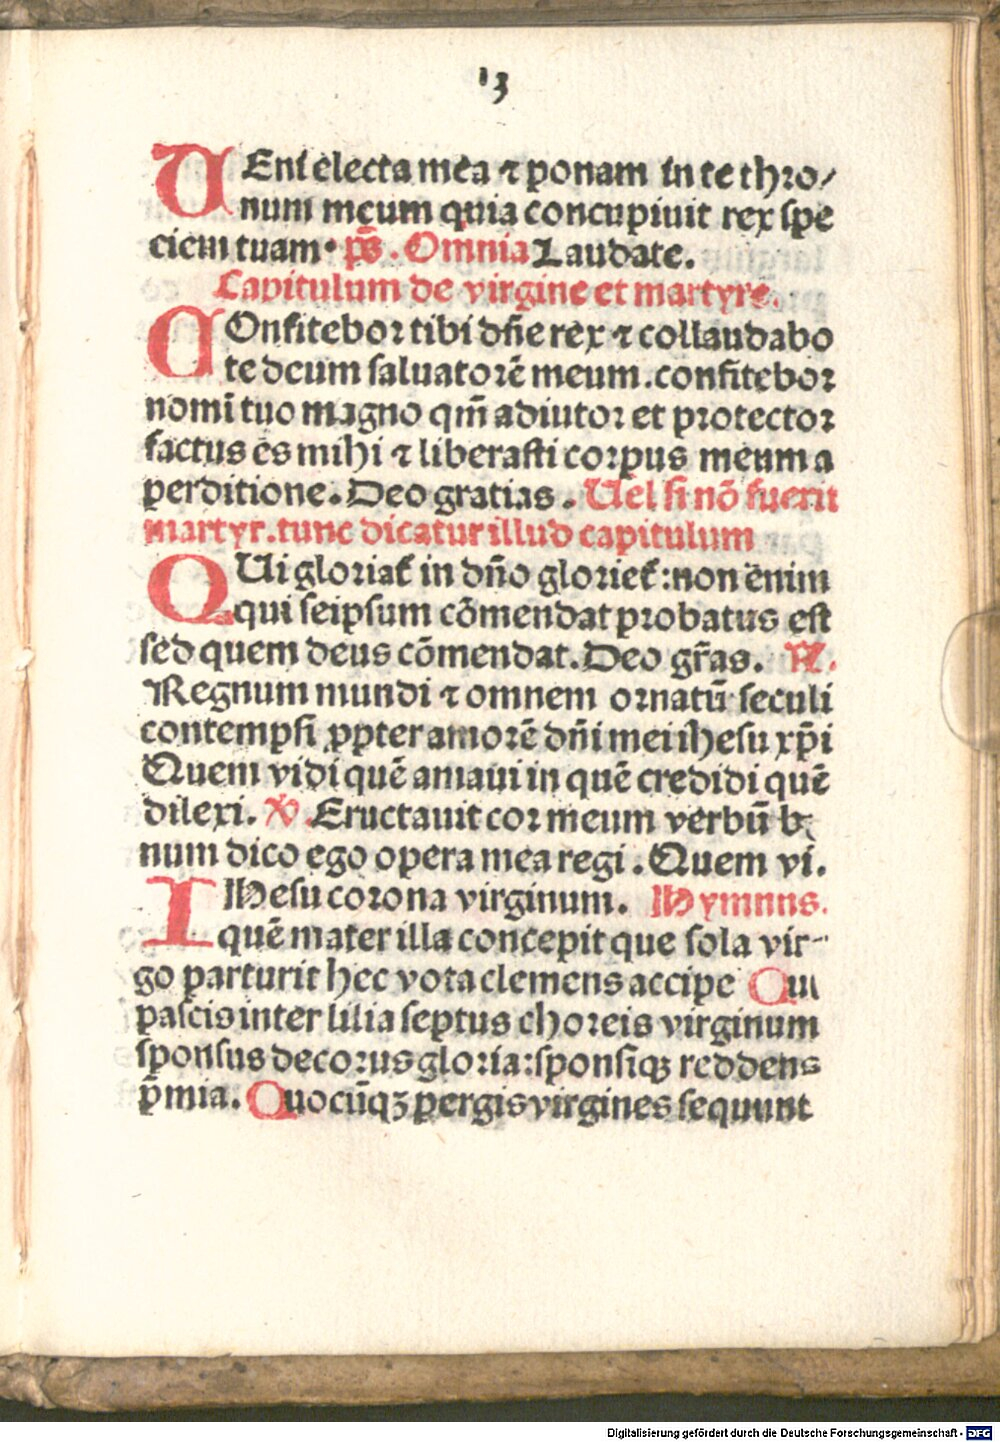 13
VEni electa mea ⁊ ponam in te thro/
num meum quia concupiuit rex spe
ciem tuam. p̄s. Omnia Laudate.
Capitulum de virgine et martyre.
COnfitebor tibi dn̄e rex ⁊ collaudabo
te deum saluatorē meum. confitebor
nomī tuo magno qm̄ adiutor et protector
factus es mihi ⁊ liberasti corpus meum a
perditione. Deo gratias. Uel si nō fuerit
martyr. tunc dicatur illud capitulum
QUi gloriat᷑ in dn̄o gloriet᷑: non enim
qui seipsum cōmendat probatus est
sed quem deus cōmendat. Deo gr̄as. ℟.
Regnum mundi ⁊ omnem ornatū seculi
contempsi ꝓpter amorē dn̄i mei ihesu xp̄i
Quem vidi quē amaui in quē credidi quē
dilexi. ℣. Eructauit cor meum verbū b
num dico ego opera mea regi. Quem vi.
IHesu corona virginum. Hymnus.
quē mater illa concepit que sola vir-
go parturit hec vota clemens accipe Qui
pascis inter lilia septus choreis virginum
sponsus decorus gloria: sponsiqꝫ reddens
p̄mia. Quocūqꝫ pergis virgines sequunt
Digitalisierung gefördert durch die Deutsche Forschungsgemeinschaft - DFG